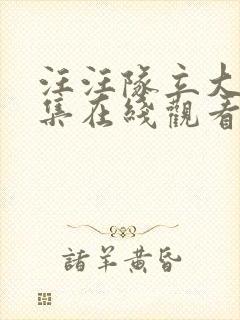 汪汪隊立大
集在綫觀看
諸羊黃昏